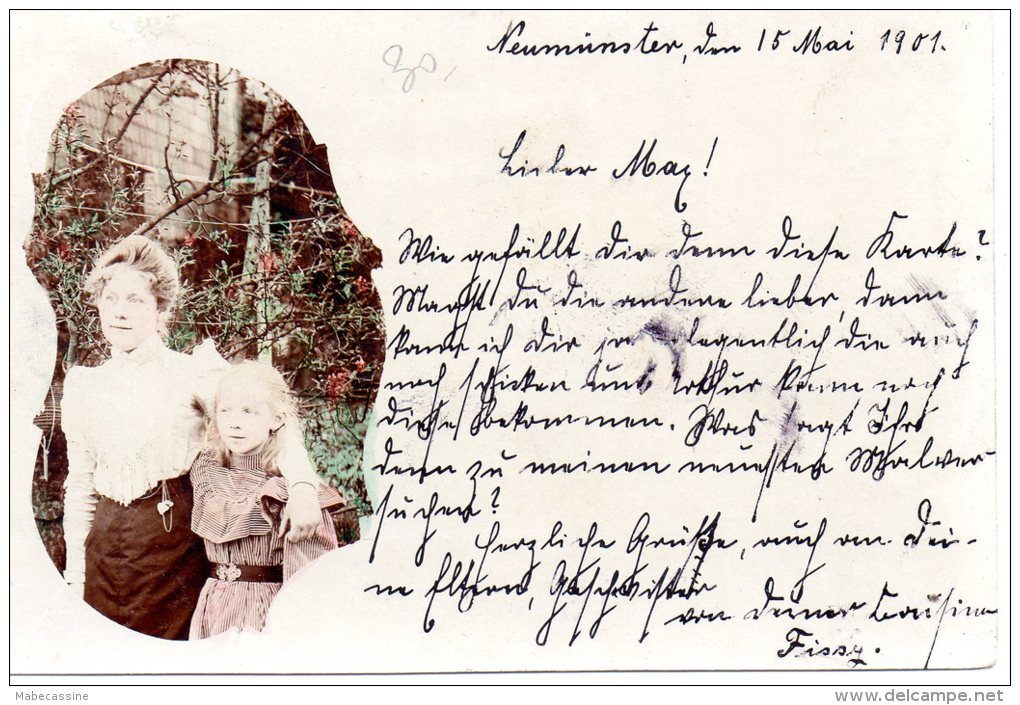 Neumünster, den 15 Mai 1901.
80.
Lieber Max!
Wie gefällt dir denn diese Karte?
Magst du die andere lieber, dann
kann ich dir ja gelegentlich die auch
noch schicken und Arthur kann noch
diese bekommen. Was sagt Ihr
denn zu meinen neuesten Malver-
suchen?
Herzliche Grüße, auch an dei-
ne Eltern, Geschwister
von deiner Cousine
Fissy.
Mabecassine
www.delcampe.net